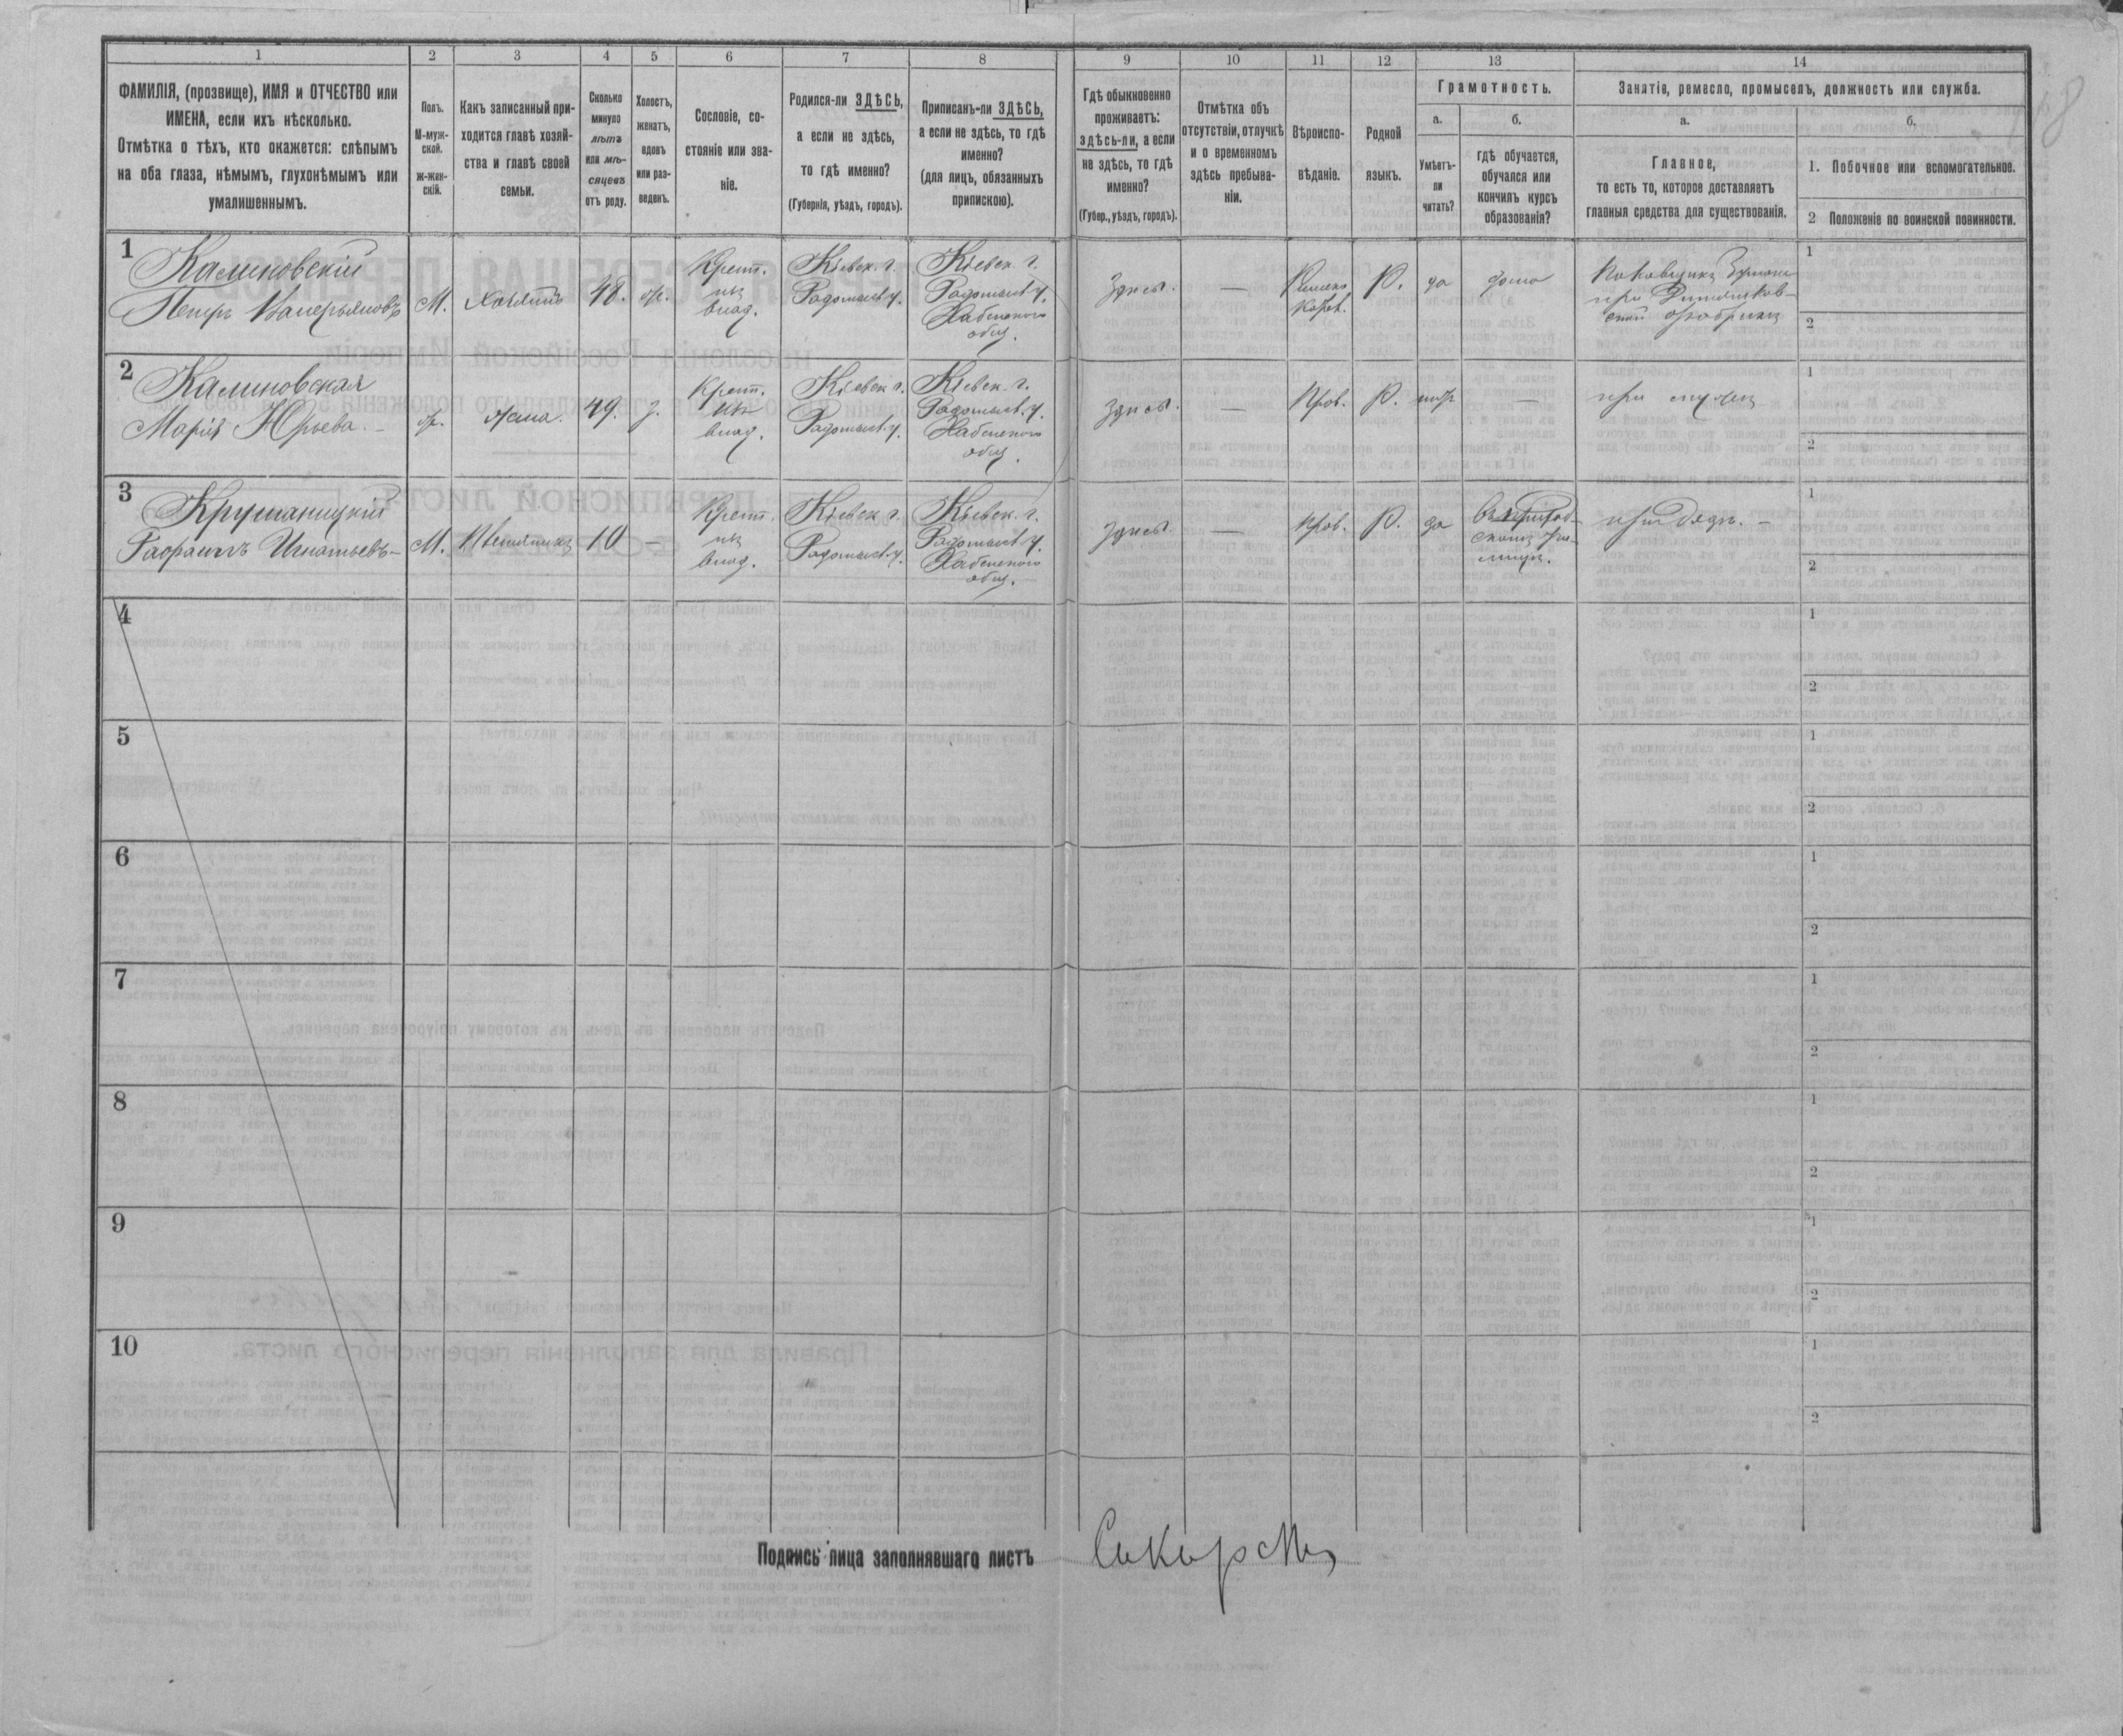 1 2 3 4 5 6 7 8 9 10 11 12 13 14
ФАМИЛІЯ, (прозвище), ИМЯ и ОТЧЕСТВО или
ИМЕНА, если ихъ нѣсколько.
Отмѣтка о тѣхъ, кто окажется: слѣпымъ
на оба глаза, нѣмымъ, глухонѣмымъ или
умалишеннымъ.
Полъ.
М-муж-
ской.
Ж-жен-
скій.
Какъ записанный при-
ходится главѣ хозяй-
ства и главѣ своей
семьи.
Сколько
минуло
лѣтъ
или мѣ-
сяцевъ
отъ роду.
Холостъ,
женатъ,
вдовъ
или раз-
веденъ.
Сословіе, со-
стояніе или зва-
ніе.
Родился-ли ЗДѢСЬ,
а если не здѣсь,
то гдѣ именно?
(Губернія, уѣздъ, городъ).
Приписанъ-ли ЗДѢСЬ,
а если не здѣсь, то гдѣ
именно?
(для лицъ, обязанныхъ
припискою).
Гдѣ обыкновенно
проживаетъ:
здѣсь-ли, а если
не здѣсь, то гдѣ
именно?
(Губер., уѣздъ, городъ).
Отмѣтка объ
отсутствіи, отлучкѣ
и о временномъ
здѣсь пребыва-
ніи.
Вѣроиспо-
вѣданіе.
Родной
языкъ.
Грамотность.
а.
Умѣетъ-
ли
читать?
б.
гдѣ обучается,
обучался или
кончилъ курсъ
образованія?
Занятіе, ремесло, промыселъ, должность или служба.
а.
Главное,
то есть то, которое доставляетъ
главныя средства для существованія.
б.
1. Побочное или вспомогательное.
2 Положеніе по воинской повинности.
1
Калиновскій
Петръ Валерьяновъ
М.
хозяинъ
48.
ж.
Крест.
изъ
влад.
Кіевск. г.
Радомысл. у.
Кіевск. г.
Радомысл. у.
Хабенского
общ.
здѣсь.
—
Р.
да
дома
при
фабрикѣ
1
2
2
Калиновская
Марія Юрьева. –
ж.
жена.
49.
з.
Крест.
изъ
влад.
Кіевск. г.
Радомысл. у.
Кіевск. г.
Радомысл. у.
Хабенского
общ.
здѣсь.
—
Прав.
Р.
—
при мужѣ
1
2
3
Крушаницкій
Игнатьевъ –
М.
Племяникъ
10
—
Крест.
изъ
влад.
Кіевск. г.
Радомысл. у.
Кіевск. г.
Радомысл. у.
Хабенского
общ.
здѣсь.
—
Прав.
Р.
да
при дядѣ. –
1
2
4
1
2
5
1
2
6
1
2
7
1
2
8
1
2
9
1
2
10
1
2
Подпись лица заполнявшаго листъ